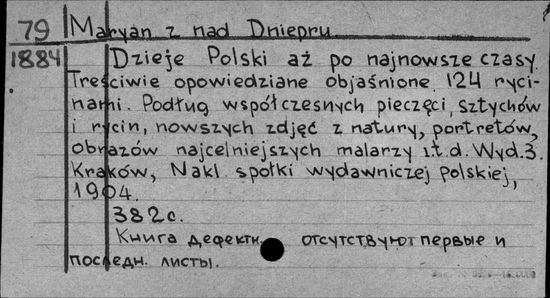 79 Maryan z nad Dniepru
1884 Dzieje Polski aż po najnowsze czasy
Treściwie opowiedziane objaśnione 124 ryci-
nami. Podług współczesnych pieczęci, sztychów
i rycin, nowszych zdjęć z natury, portretów,
obrazów najcelniejszych malarzy i.t.d. Wyd.3.
Kraków, Nakl. społki wydawniczej Polskiej,
1904.
382c.
Книга дефектн. отсутствуют первые и
последн. листы.